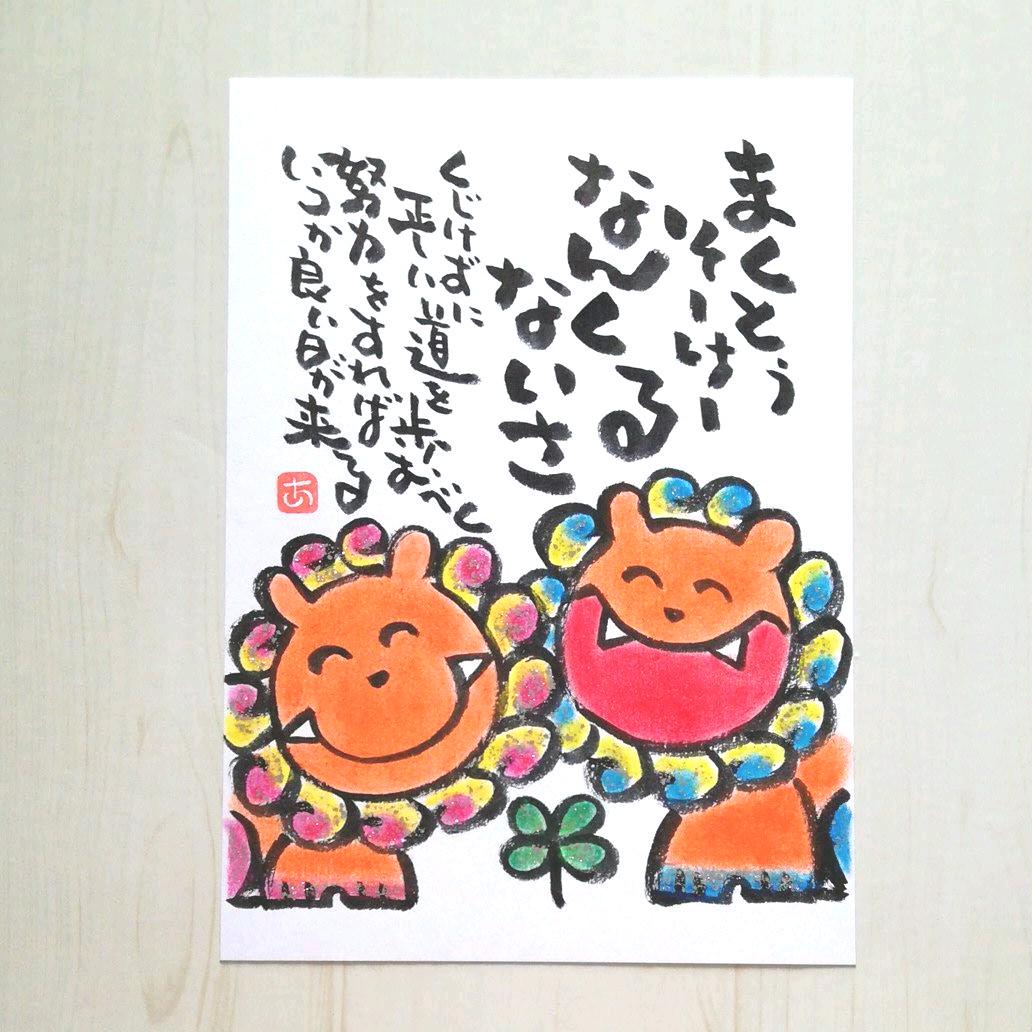 まくとぅ
そーけー
なんくる
ないさ
くじけずに
正しい道を歩むべし
努力をすれば
いつか良い日が来る
あ